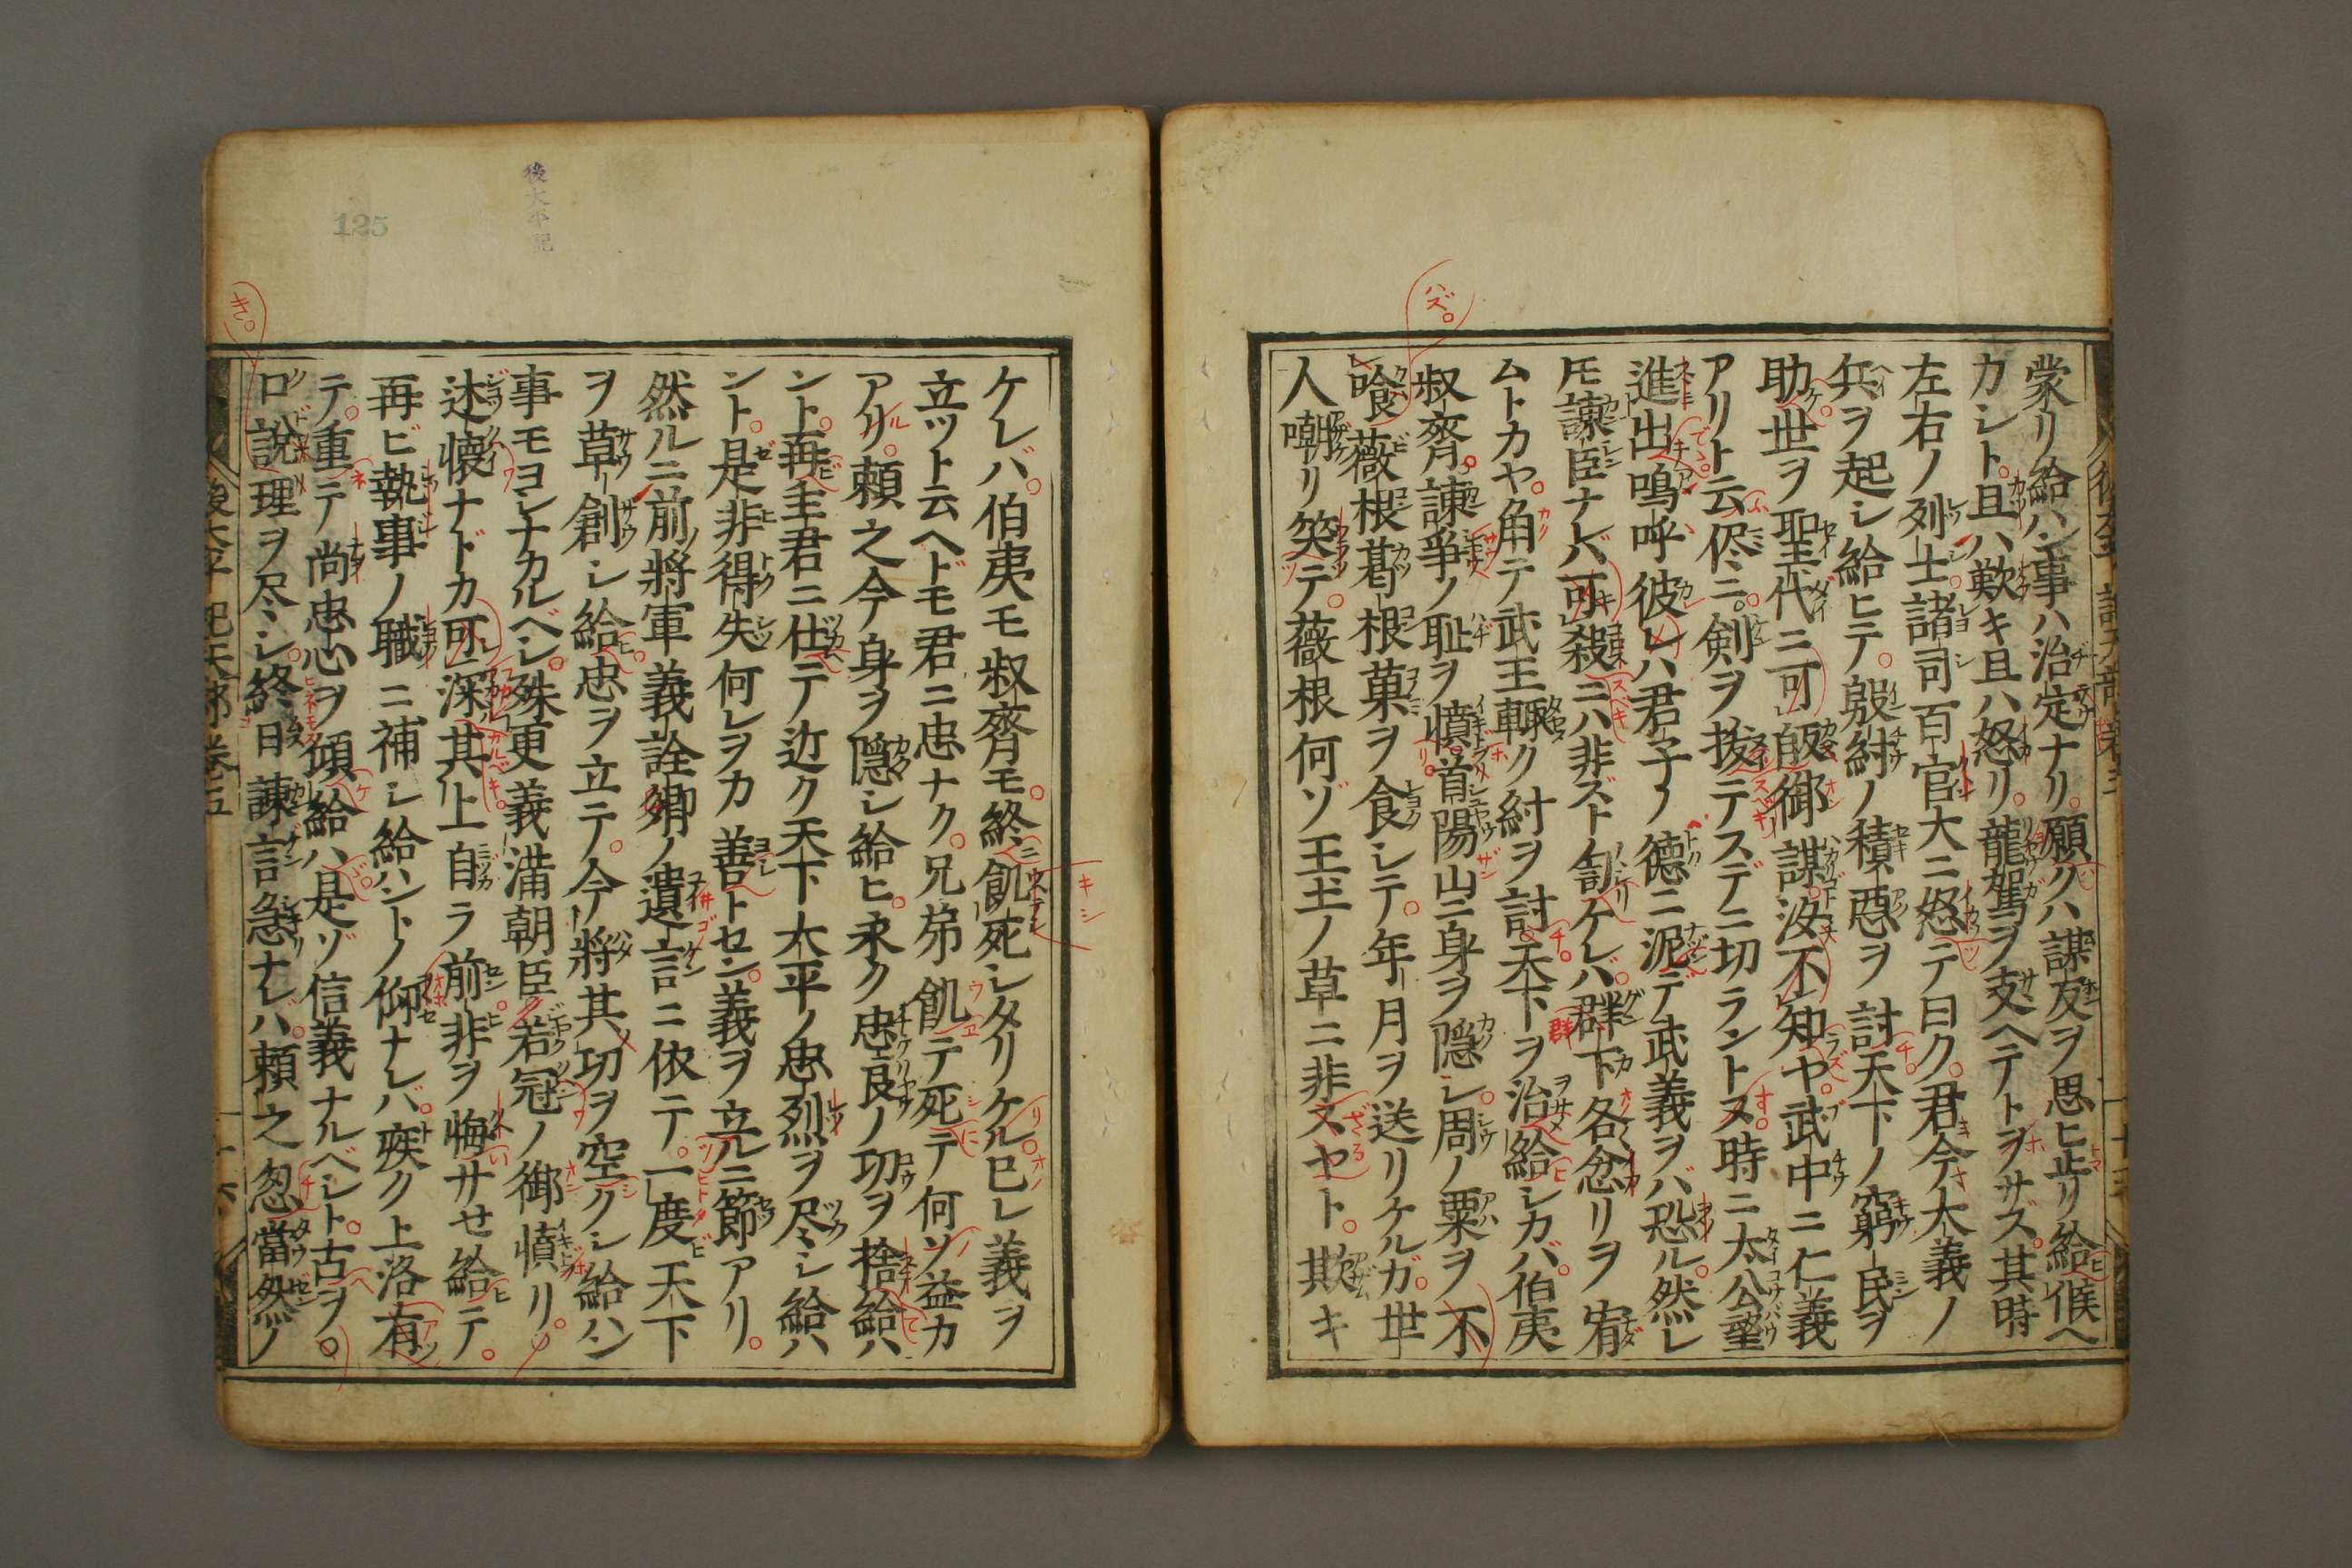 蒙リ給ハン事ハ治定ナリ願クハ謀反ヲ思ヒ止リ給候ヘ
カシト且ハ歎キ且ハ怒リ龍駕ヲ支ヘテトヲサズ其時
左右ノ列士諸司百官大ニ怒テ曰ク君今大義ノ
兵ヲ起シ給ヒテ殷紂ノ積悪ヲ討天下ノ窮民ヲ
助世ヲ聖代ニ可皈御謀汝不知ヤ武中ニ仁義
アリト云侭ニ剣ヲ抜テスデニ切ラントス時ニ太公望
進出嗚呼彼レハ君子ノ徳ニ泥デ武義ヲバ恐ル然レ
𪜈諫臣ナレバ可殺ニハ非ズト制ケレバ群下各忿リヲ宥
ムトカヤ角テ武王輙ク紂ヲ討天下ヲ治給シカバ伯夷
叔齊諫爭ノ耻ヲ憤首陽山ニ身ヲ隠シ周ノ粟ヲ不
喰薇根葛根菓ヲ食シテ年月ヲ送リケルガ世
人嘲リ笑テ薇根何ゾ王土ノ草ニ非スヤト欺キ
ケレバ伯夷モ叔齊モ終飢死シタリケル已レ義ヲ
立ツト云ヘドモ君ニ忠ナク兄弟飢テ死テ何ソ益カ
アリ頼之今身ヲ隠シ給ヒ永ク忠良ノ功ヲ捨給ハ
ント再主君ニ仕テ近ク天下太平ノ忠烈ヲ尽シ給ハ
ント是非得失何レヲカ善トセン義ヲ立ルニ節アリ
然ルニ前將軍義詮卿ノ遺言ニ依テ一度天下
ヲ草創シ給忠ヲ立テ今將其功ヲ空クシ給ハン
事モヨシナカルベシ殊更義満朝臣若冠ノ御憤リ
述懐ナドカ可深其上自ラ前非ヲ悔サせ給テ
再ビ執事ノ職ニ補シ給ハントノ仰ナレバ疾ク上洛有
テ重テ尚忠心ヲ傾給ハ是ゾ信義ナルベシト古ヲ
口説理ヲ尽シ終日諫言急ナレバ頼之忽當然ノ
後太平記
125